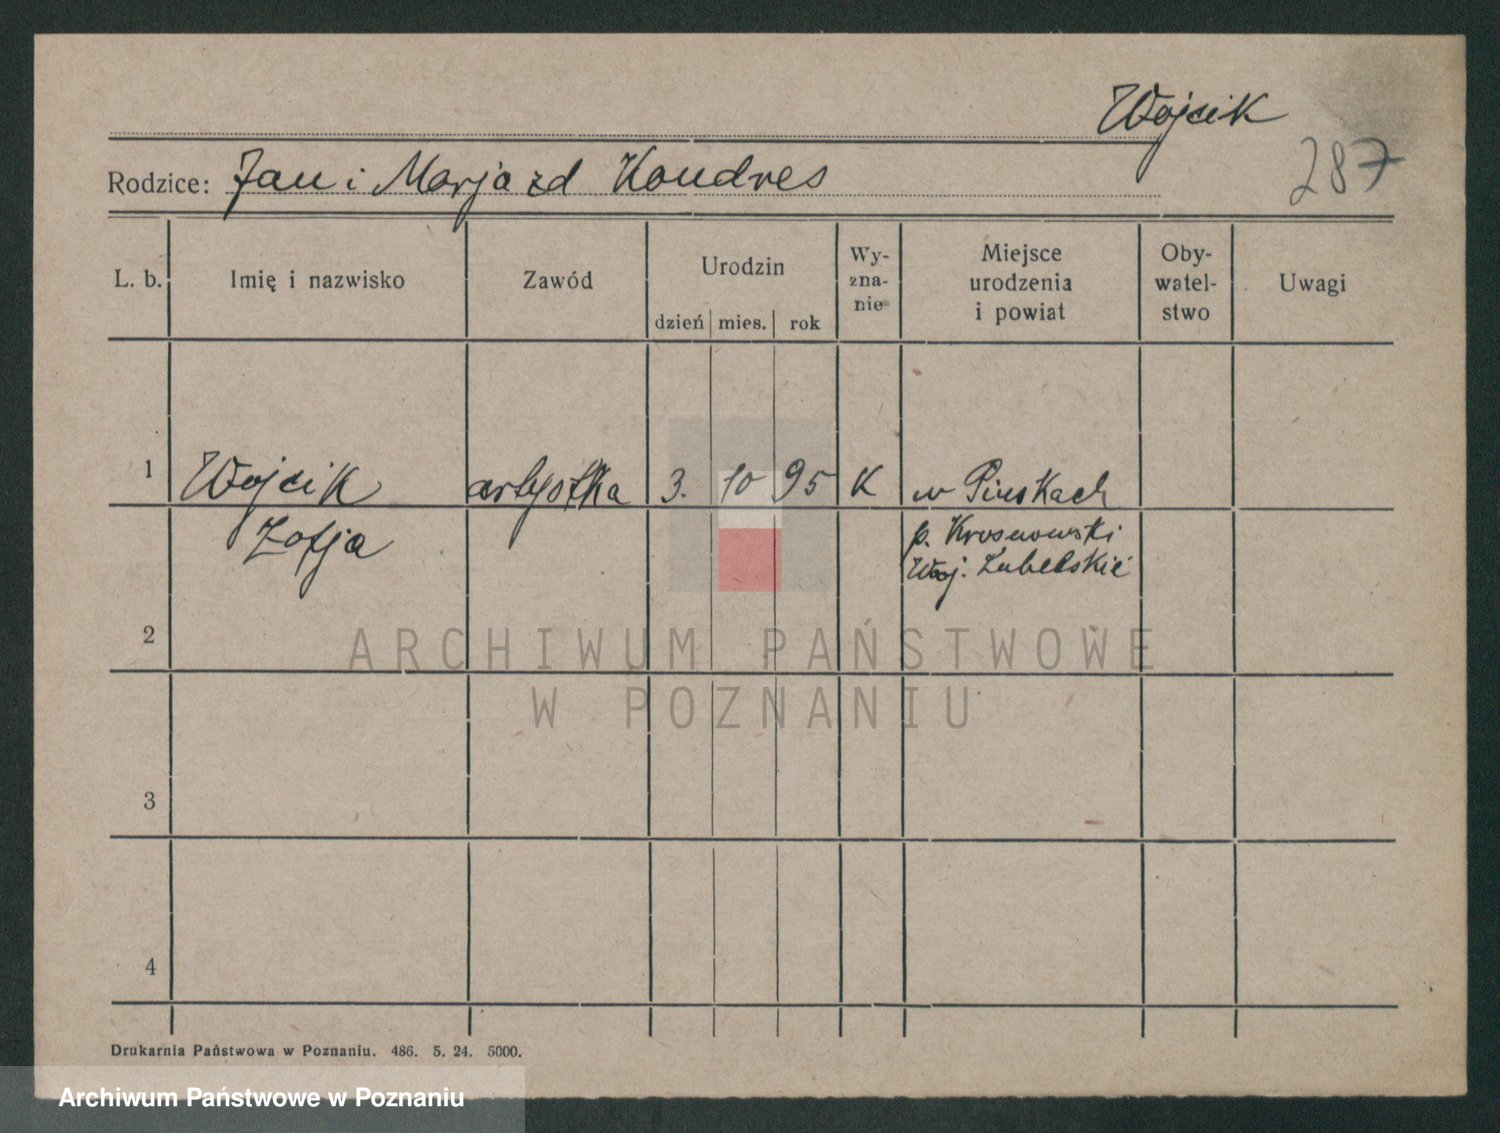 Wojcik
287
Rodzice: Jan i Marja zd Kondres
L. b.
Imię i nazwisko
Zawód
Urodzin
dzień mies. rok
Wy-
zna-
nie
Miejsce
urodzenia
i powiat
Oby-
watel-
stwo
Uwagi
1 Wojcik artystka 3. 10 95 K w Piuskach
Zofja
p. Krosnowski
Woj. Lubelskie
2
3
4
Drukarnia Państwowa w Poznaniu. 486. 5. 24. 5000.
ARCHIWUM PAŃSTWOWE
W POZNANIU
Archiwum Państwowe w Poznaniu